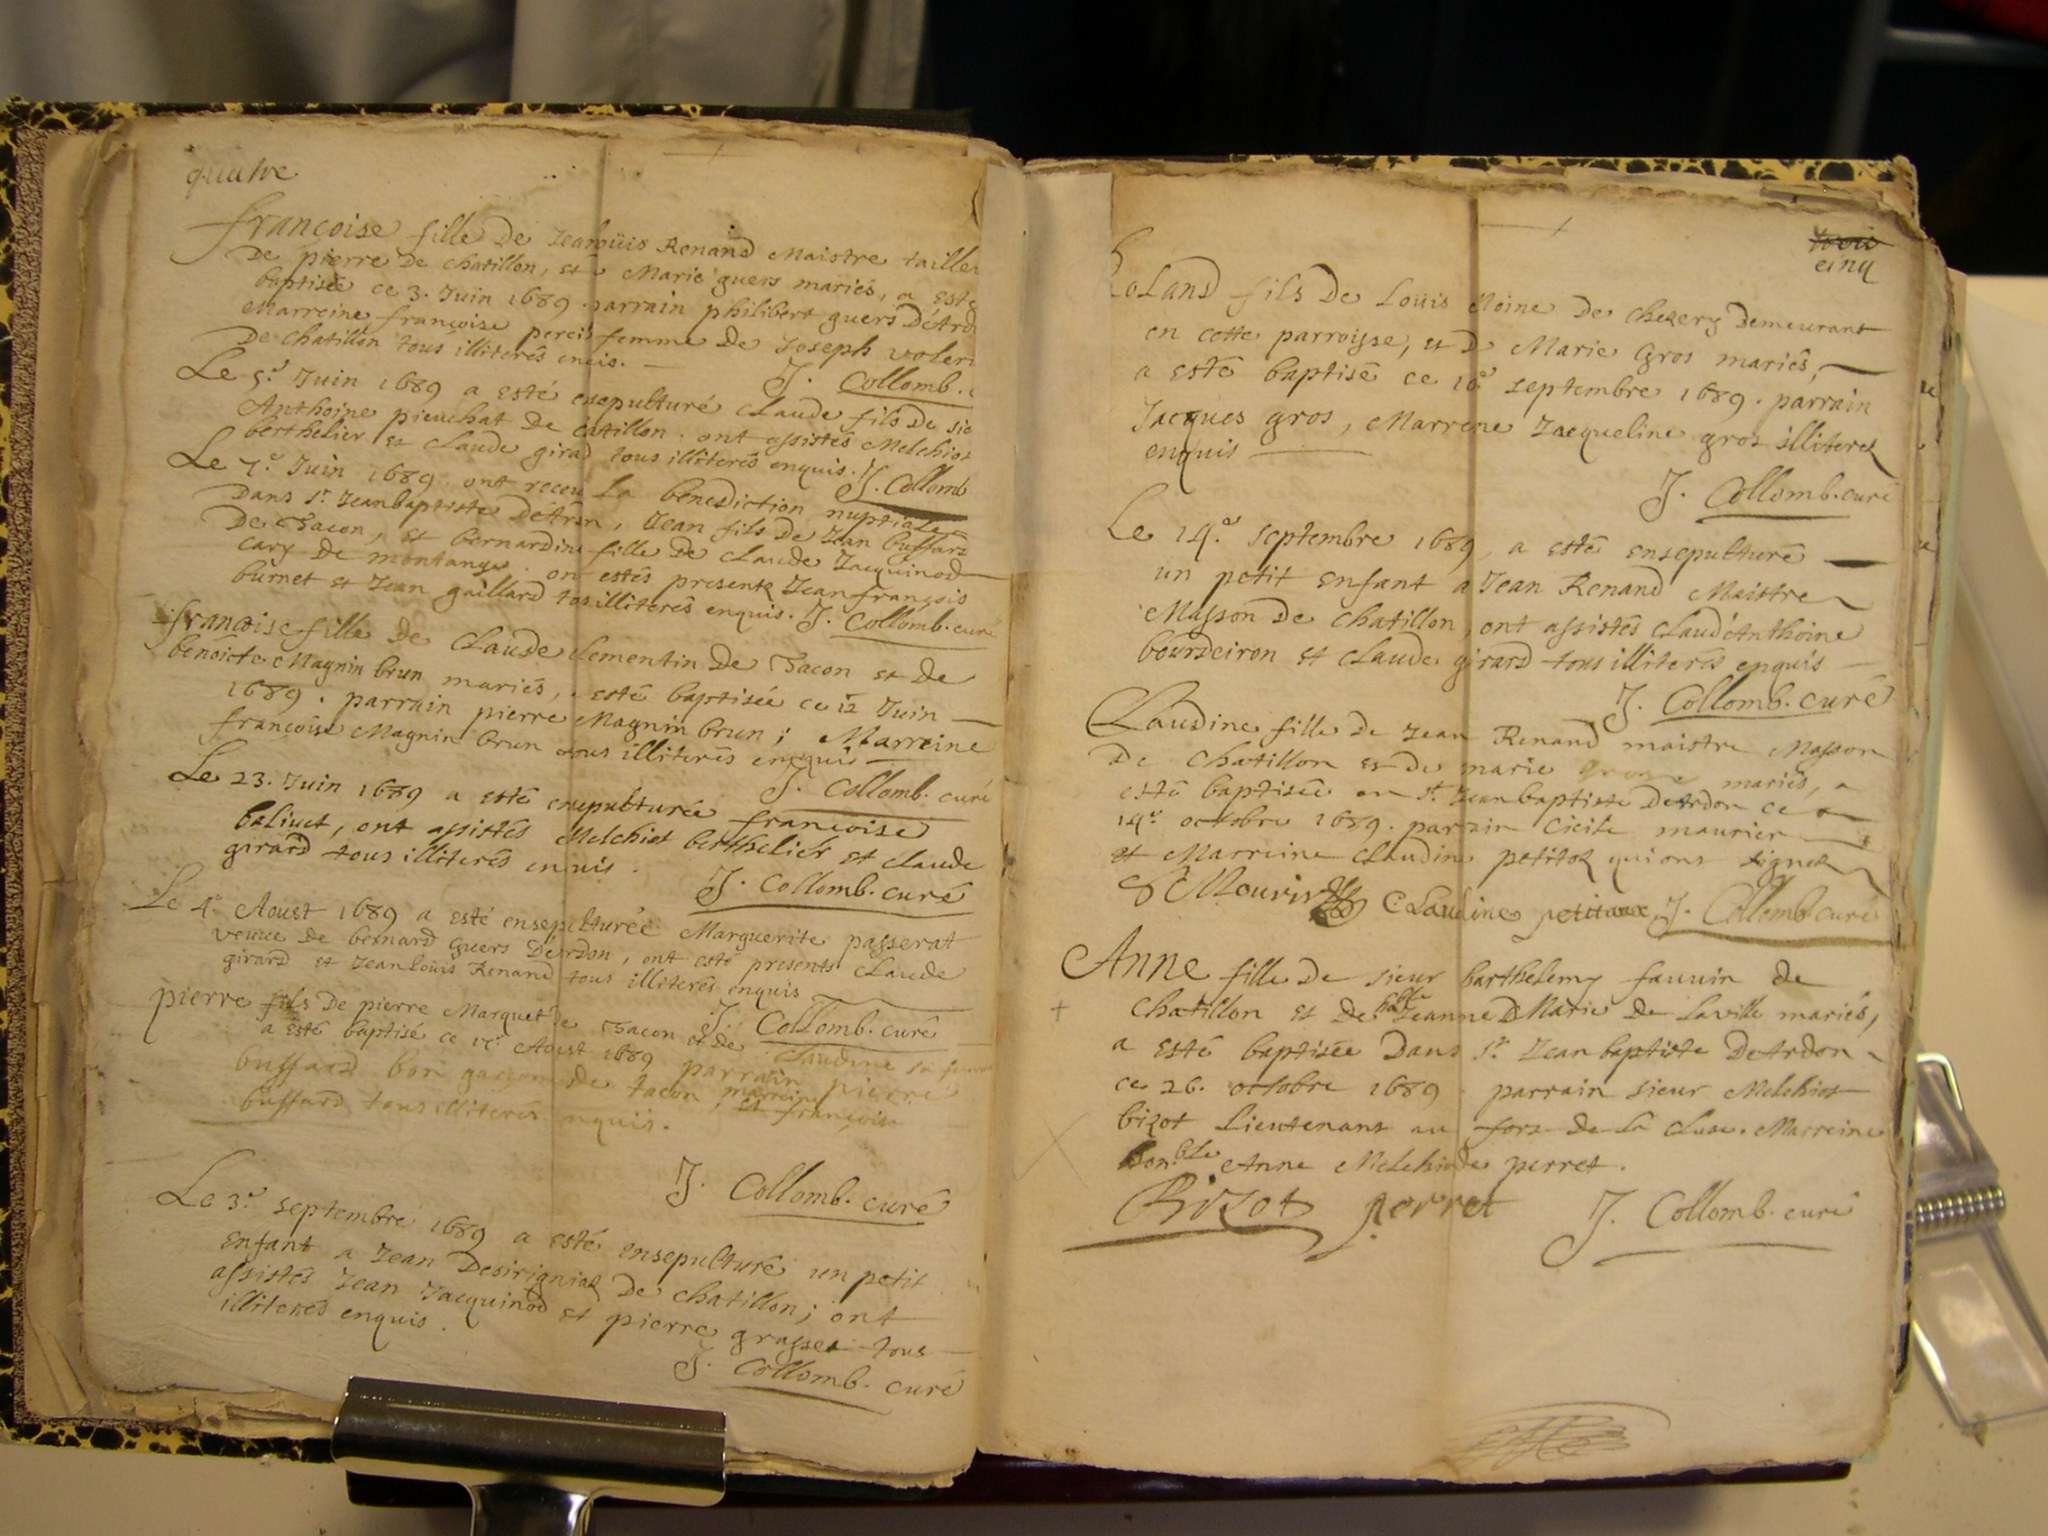 quatre
françoise fille De Jeanloüis Renand Maistre tailleu
De pierre De chatillon, et Marie guers mariés, a esté
baptisée ce 3. Juin 1689. parrain philibert guers D'Ard
Marreine françoise perein femme De Joseph
De chatillon tous illiterés
J. Collomb.
Le 5.e Juin 1689 a esté ensepulturé Claude fils De sie
Anthoine pieuchat De catillon. ont assistés Melchiot
berthelier et Claude girard tous illiterés enquis. J. Collomb
Le 7.e Juin 1689. ont receu La benediction nuptiale
Dans st. Jeanbaptiste D'Ardon, Jean fils De Jean buffard
De Tacon, et bernardine fille De Claude Jacquinod
cary De montange. ont estés presents Jeanfrançois
burnet et Jean gaillard tos illiterés enquis. J. Collomb. curé
françoise fille De Claude Clementin De Tacon et De
benoicte Magnin brun mariés, esté baptisée ce 12 Juin
1689. parrain pierre Magnin brun; Marreine
françoise Magnin brun tous illiterés enquis
J. Collomb. curé
Le 23. Juin 1689 a esté ensepulturée françoise
balivet, ont assistés Melchiot berthelier et Claude
girard tous illiterés enquis.
J. Collomb. curé
Le 4.e Aoust 1689 a esté ensepulturée Marguerite passerat
veuue De bernard Guers D'Ardon, ont esté presents Claude
girard et Jeanloüis Renand tous illiterés enquis
J. Collomb. curé
pierre fils De pierre Marquet De Tacon et De Claudine sa femme
a esté baptisé ce Aoust 1689 parrain pierre
buffard bon garçon De tacon, marreine françoise
buffard tous illiterés enquis.
J. Collomb. curé
Le 3.e septembre 1689 a esté ensepulturé un petit
Enfant a Jean Desirigniat De chatillon; ont
assistés Jean Jacquinod et pierre grasset tous
illiterés enquis.
J. Collomb. curé
trois
cinq
Roland fils De Loüis Moine De chezery Demeurant
en cette parroisse, et D Marie Gros mariés,
a esté baptisé ce 10e septembre 1689. parrain
Jacques gros, Marrene Jacqueline gros illiterez
enquis
J. Collomb. curé
Le 14.e septembre 1689, a esté ensepulturé
un petit Enfant a Jean Renand Maistre
Masson De chatillon, ont assistés Claud'Anthoine
bourdeiron et Claude girard tous illiterés enquis
J. Collomb. curé
Claudine fille De Jean Renand maistre Masson
De Chatillon et De marie mariés, a
esté baptisée en st. Jeanbaptiste D'Ardon ce
14.e octobre 1689. parrain Cicile maurier
et Marreine Claudine petitoz qui ont signez
Mouris Claudine petitaux, J. Collomb curé
Anne fille De sieur barthelemy fauuin de
Chatillon et De hble Jeanne D Marie De Laville mariés,
a esté baptisée Dans st. Jean baptiste D'Ardon
ce 26. octobre 1689. parrain sieur Melchiot
bizot Lieutenant au fort De La Cluse. Marreine
hon.ble Anne Melchiode perret.
Bizot perret J. Collomb. curé